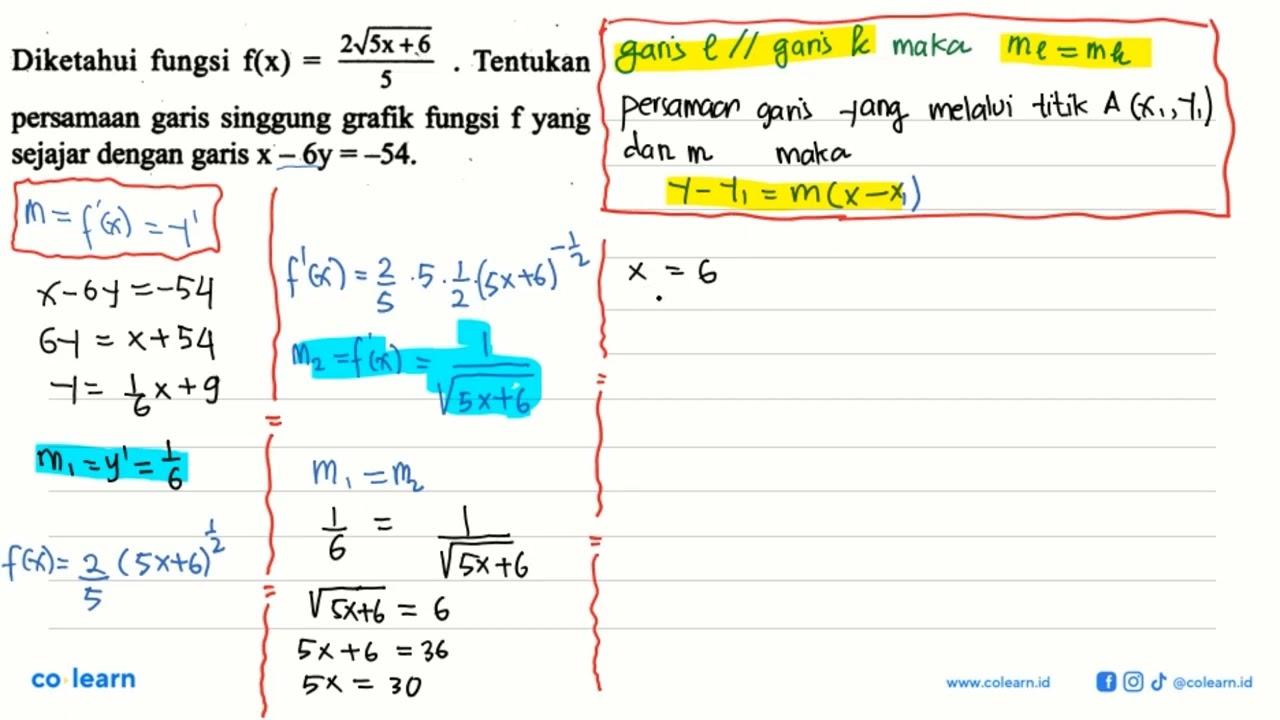 Diketahui fungsi f(x) = 2√5x+6 / 5 . Tentukan
persamaan garis singgung grafik fungsi f yang
sejajar dengan garis x – 6y = –54.
garis l // garis k maka ml = mk
persamaan garis yang melalui titik A (x₁, y₁)
dan m maka
y – y₁ = m(x – x₁)
m = f'(x) = y'
x – 6y = –54
6y = x + 54
y = 1/6 x + 9
m₁ = y' = 1/6
f(x) = 2/5 (5x+6)^1/2
f'(x) = 2/5 · 5 · 1/2 · (5x+6)^-1/2
m₂ = f'(x) = 1/√5x+6
m₁ = m₂
1/6 = 1/√5x+6
√5x+6 = 6
5x+6 = 36
5x = 30
x = 6
=
=
=
=
co learn
www.colearn.id
@colearn.id